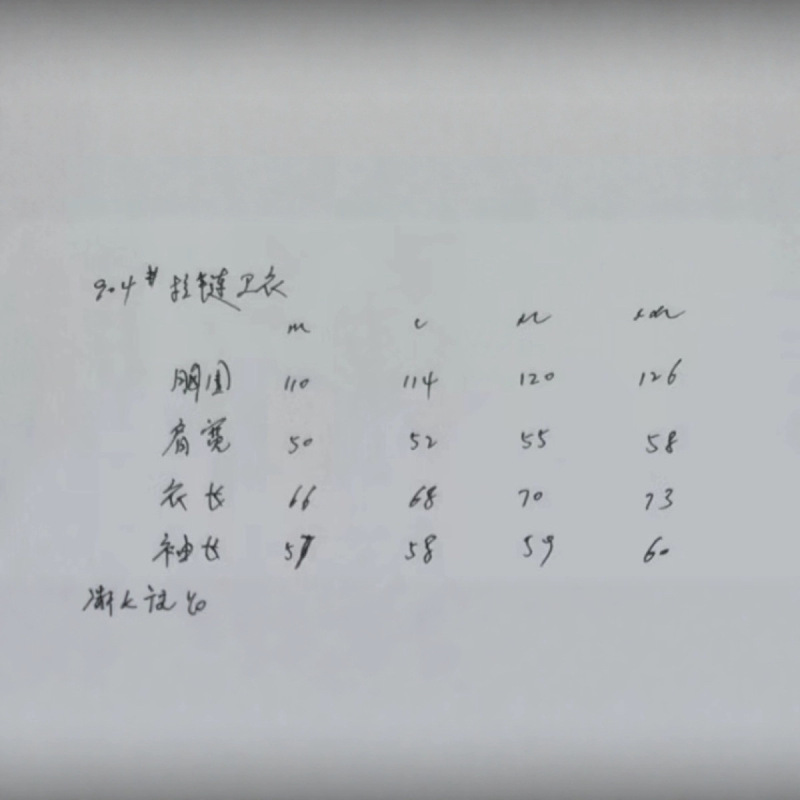 904# 拉链卫衣
m L XL XXL
胸围 110 114 120 126
肩宽 50 52 55 58
衣长 66 68 70 73
袖长 57 58 59 60